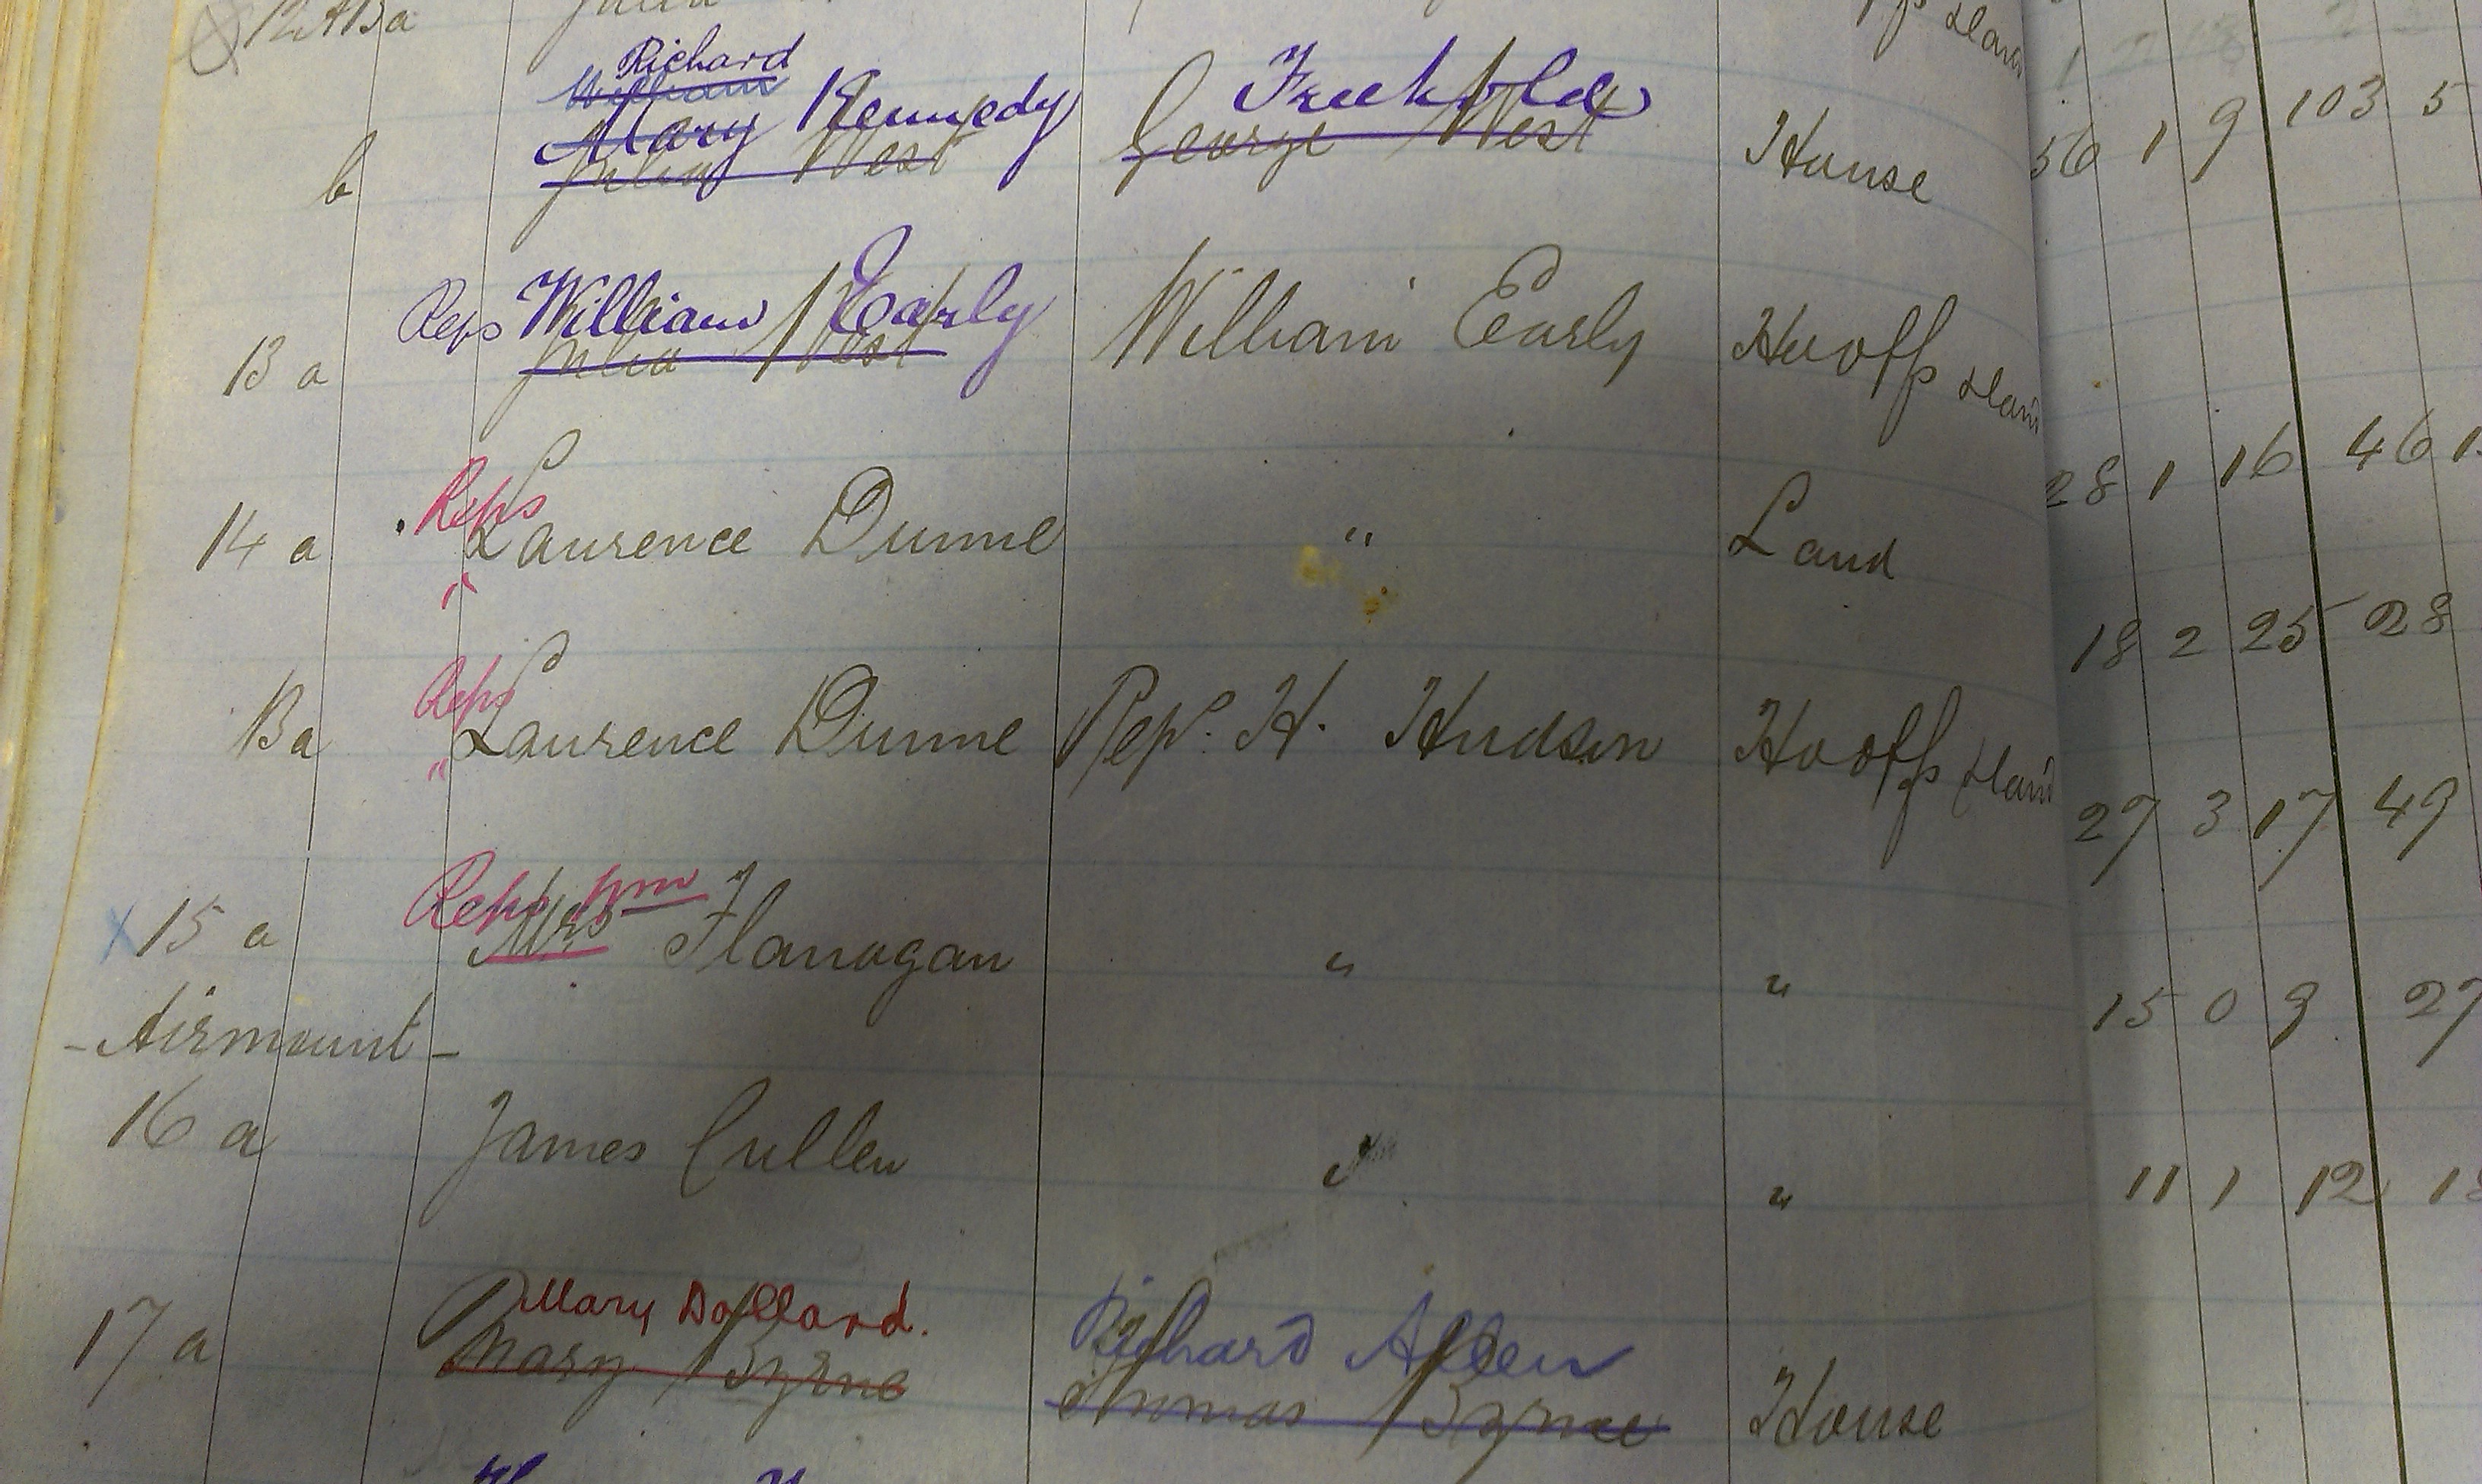 12A13a Julia
Richard
William
Mary Kennedy Freehold
b Julia West George West House 56 1 9 103 5
Reps William Early
13 a Julia West William Early Ho offs & land
28 1 16 46
Reps
14 a Laurence Dunne " Land
18 2 25 28
Reps
13a Laurence Dunne Reps. H. Hudson Ho offs & land
27 3 17 49
Reps
15 a Mrs Flanagan " "
15 0 9 27
- Airmount -
16 a James Cullen " "
11 1 12
Mary Dollard. Richard Allen
17 a Mary Byrne Thomas Byrne House